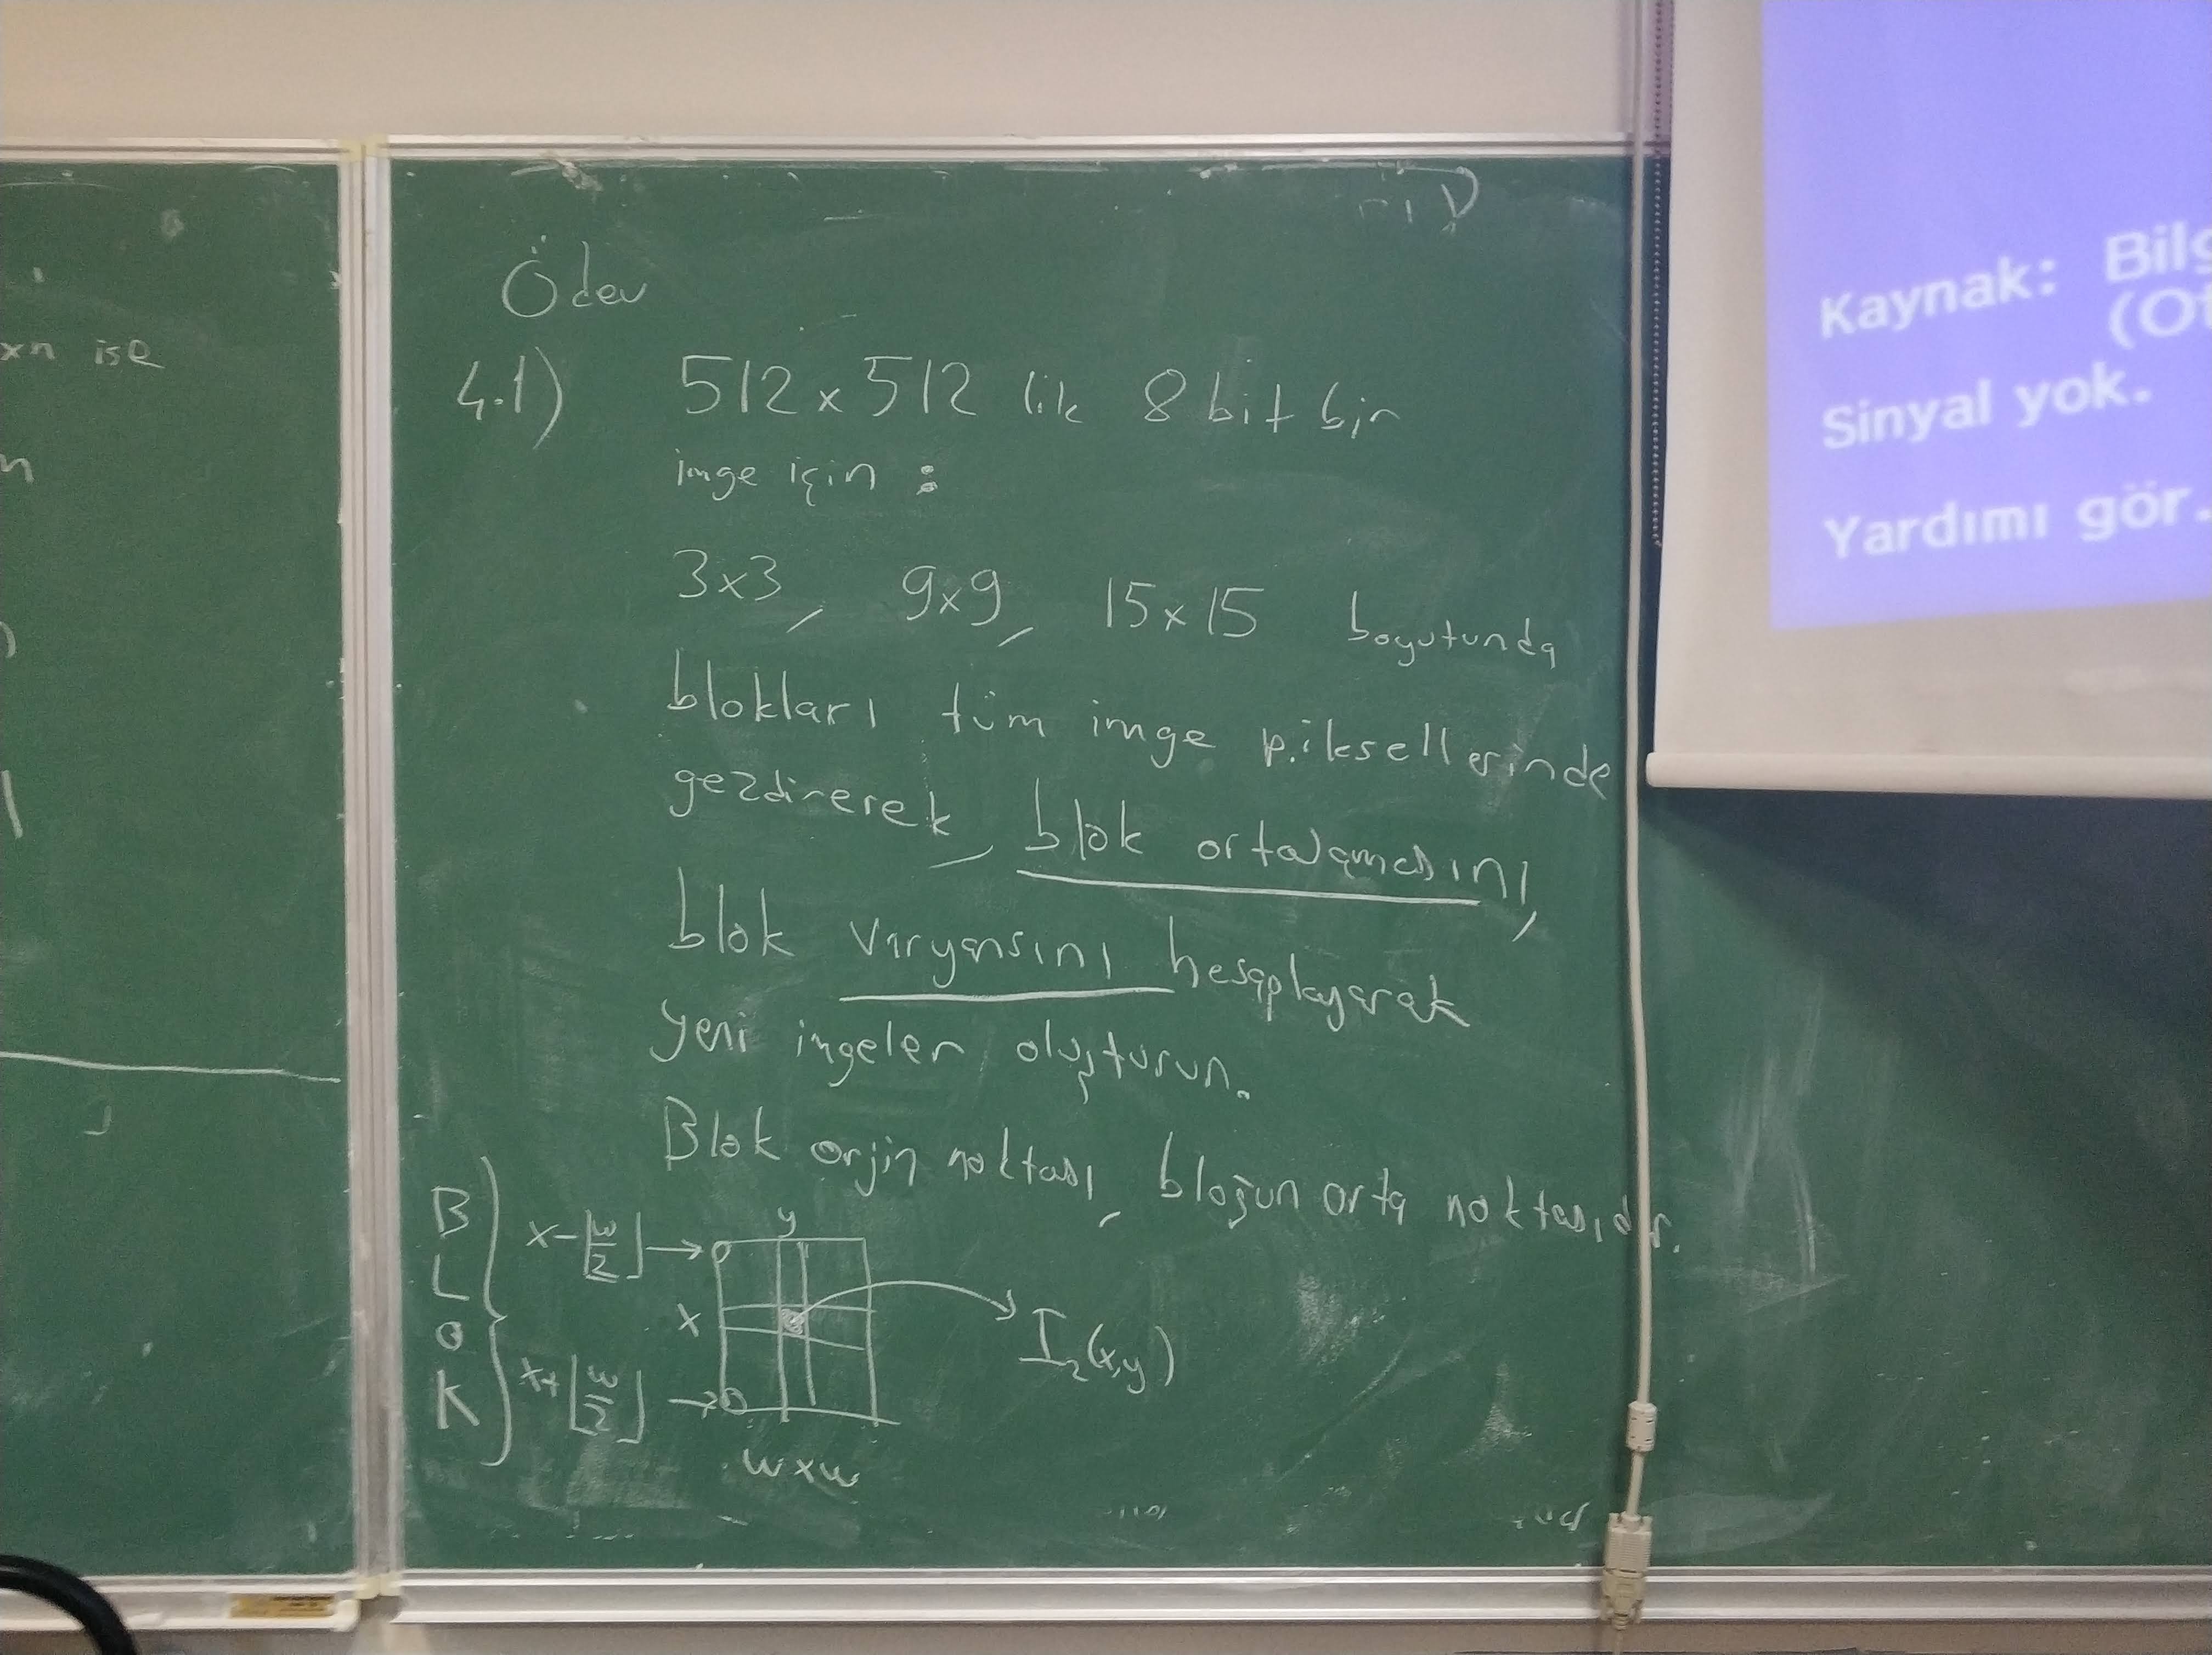 xn ise
Ödev
4.1) 512 x 512 lik 8 bit bir
imge için :
3x3, 9x9, 15x15 boyutunda
blokları tüm imge piksellerinde
gezdirerek, blok ortalamasını,
blok varyansını hesaplayarak
yeni imgeler oluşturun.
Blok orjin noktası, bloğun orta noktasıdır.
BLOK
x-⌊w/2⌋ →
y
x
x+⌊w/2⌋ →
I₂(x,y)
w x w
Kaynak: Bilg
(Ot
Sinyal yok.
Yardımı gör.